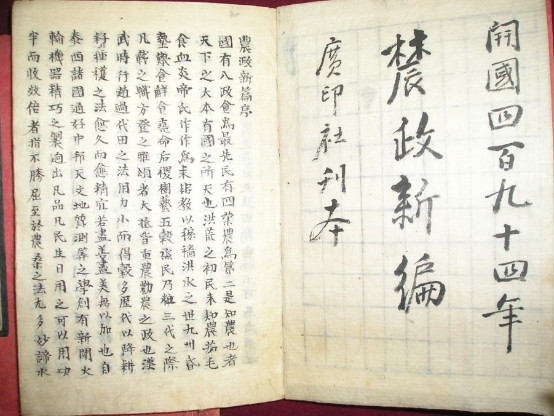 開國四百九十四年
農政新編
廣印社刊本
農政新篇序
國有八政食爲最先民有四業農爲第二是知農也者
天下之大本有國之所天也洪荒之初民未知農茹毛
食血炎帝氏作作爲耒耜教以稼穡洪水之世九州昏
墊艱食鮮食堯命后稷樹藝五穀烝民乃粒三代之際
凡載之職方登之雅頌者大抵皆重農勸農之政也漢
武時行趙過代田之法用力小而得穀多歷代以降耕
耔種穫之法愈久而愈精宜若盡善盡美無以加也自
泰西諸國通好中邦天文地質測算等之學創有新聞火
輪機器精巧之製迥出凡品凡民生日用之可以用功
半而收效倍者指不勝屈至於農桑之法尤多妙諦水